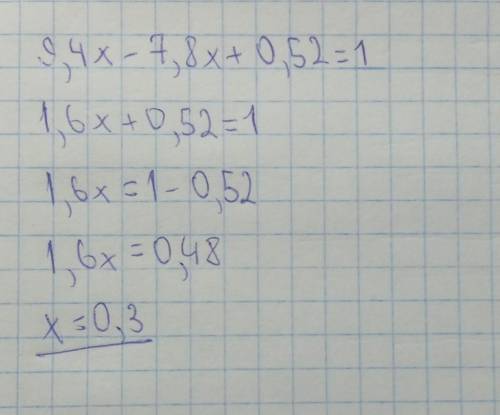 9,4x - 7,8x + 0,52 = 1
1,6x + 0,52 = 1
1,6x = 1 - 0,52
1,6x = 0,48
x = 0,3